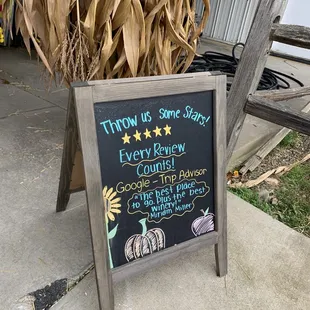 Throw us some Stars!
Every Review
Counts!
Google - Trip Advisor
"The best Place
to go. Plus the best
winery!"
Miriam Miller